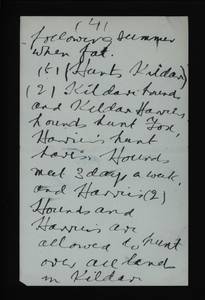 (4)
following summer
when fat.
(1) (Hunts Kildare)
(2) Kildare hounds
and Kildare Harriers,
hounds hunt Fox,
Harriers hunt
hares. Hounds
meet 3 days a week,
and Harriers (2)
Hounds and
Harriers are
allowed to hunt
over all land
in Kildare